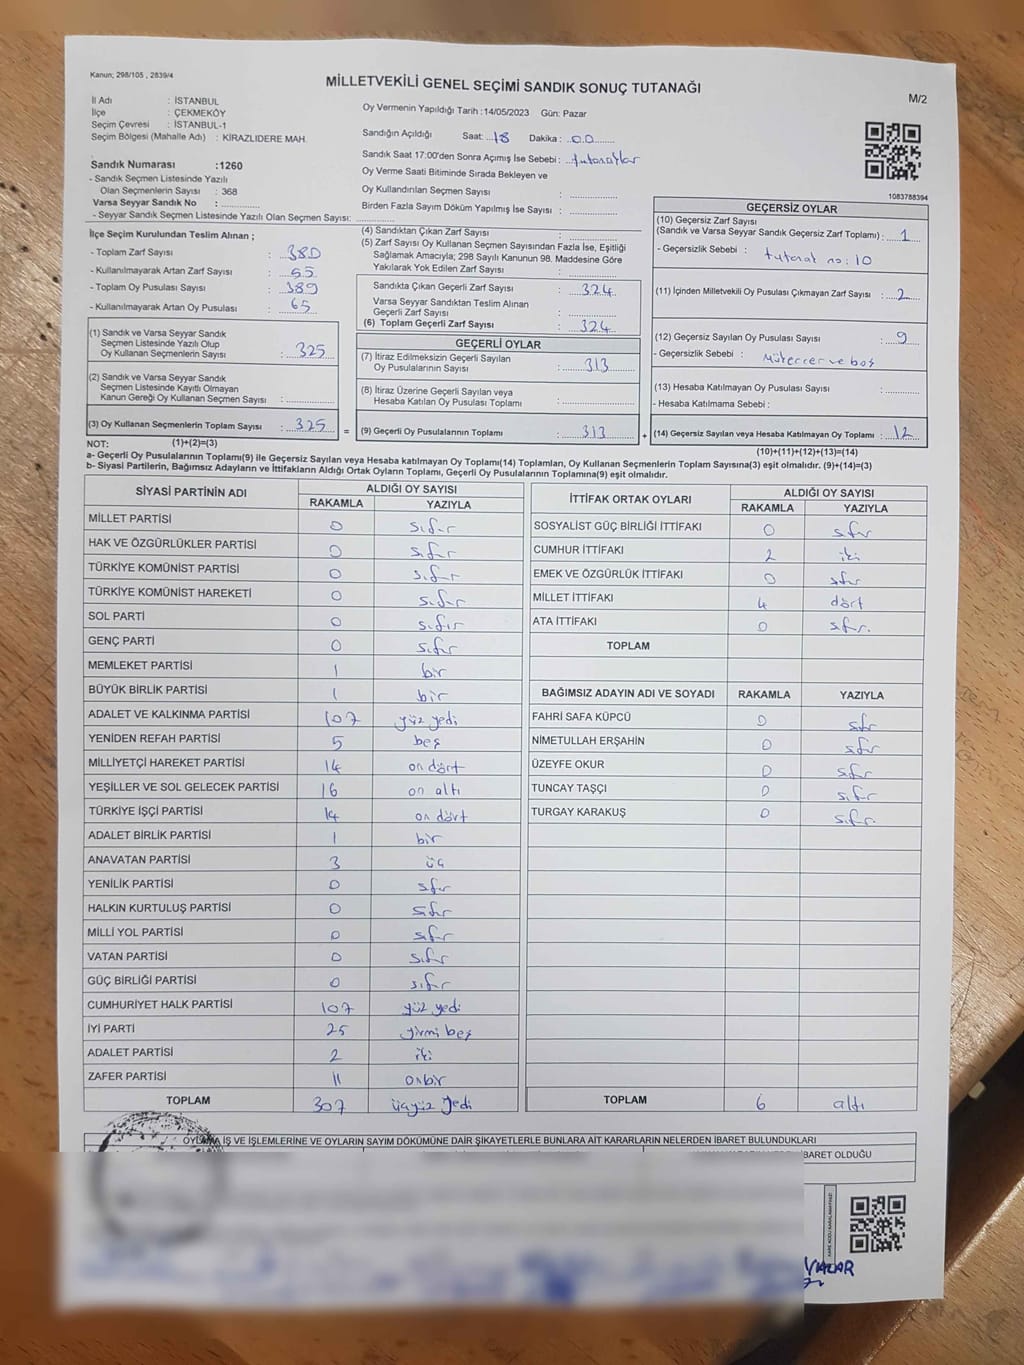 Kanun; 298/105 , 2839/4
MİLLETVEKİLİ GENEL SEÇİMİ SANDIK SONUÇ TUTANAĞI
M/2
İl Adı : İSTANBUL
İlçe : ÇEKMEKÖY
Seçim Çevresi : İSTANBUL-1
Seçim Bölgesi (Mahalle Adı) : KİRAZLIDERE MAH.
Sandık Numarası :1260
- Sandık Seçmen Listesinde Yazılı
Olan Seçmenlerin Sayısı : 368
Varsa Seyyar Sandık No :
- Seyyar Sandık Seçmen Listesinde Yazılı Olan Seçmen Sayısı:
Oy Vermenin Yapıldığı Tarih :14/05/2023 Gün: Pazar
Sandığın Açıldığı Saat: 18 Dakika : 00
Sandık Saat 17:00'den Sonra Açımış İse Sebebi : tutanaklar
Oy Verme Saati Bitiminde Sırada Bekleyen ve
Oy Kullandırılan Seçmen Sayısı :
Birden Fazla Sayım Döküm Yapılmış İse Sayısı :
1083788394
İlçe Seçim Kurulundan Teslim Alınan ;
- Toplam Zarf Sayısı : 380
- Kullanılmayarak Artan Zarf Sayısı : 55
- Toplam Oy Pusulası Sayısı : 389
- Kullanılmayarak Artan Oy Pusulası : 65
(1) Sandık ve Varsa Seyyar Sandık
Seçmen Listesinde Yazılı Olup
Oy Kullanan Seçmenlerin Sayısı : 325
(2) Sandık ve Varsa Seyyar Sandık
Seçmen Listesinde Kayıtlı Olmayan
Kanun Gereği Oy Kullanan Seçmen Sayısı :
(3) Oy Kullanan Seçmenlerin Toplam Sayısı : 325 =
(4) Sandıktan Çıkan Zarf Sayısı :
(5) Zarf Sayısı Oy Kullanan Seçmen Sayısından Fazla İse, Eşitliği
Sağlamak Amacıyla; 298 Sayılı Kanunun 98. Maddesine Göre
Yakılarak Yok Edilen Zarf Sayısı :
Sandıkta Çıkan Geçerli Zarf Sayısı : 324
Varsa Seyyar Sandıktan Teslim Alınan
Geçerli Zarf Sayısı :
(6) Toplam Geçerli Zarf Sayısı : 324
GEÇERLİ OYLAR
(7) İtiraz Edilmeksizin Geçerli Sayılan
Oy Pusulalarının Sayısı : 313
(8) İtiraz Üzerine Geçerli Sayılan veya
Hesaba Katılan Oy Pusulası Toplamı :
(9) Geçerli Oy Pusulalarının Toplamı : 313 +
GEÇERSİZ OYLAR
(10) Geçersiz Zarf Sayısı
(Sandık ve Varsa Seyyar Sandık Geçersiz Zarf Toplamı) : 1
- Geçersizlik Sebebi : tutanak no: 10
(11) İçinden Milletvekili Oy Pusulası Çıkmayan Zarf Sayısı : 2
(12) Geçersiz Sayılan Oy Pusulası Sayısı : 9
- Geçersizlik Sebebi : Mükerrer ve boş
(13) Hesaba Katılmayan Oy Pusulası Sayısı :
- Hesaba Katılmama Sebebi :
(14) Geçersiz Sayılan veya Hesaba Katılmayan Oy Toplamı : 12
NOT: (1)+(2)=(3)
(10)+(11)+(12)+(13)=(14)
a- Geçerli Oy Pusulalarının Toplamı(9) ile Geçersiz Sayılan veya Hesaba katılmayan Oy Toplamı(14) Toplamları, Oy Kullanan Seçmenlerin Toplam Sayısına(3) eşit olmalıdır. (9)+(14)=(3)
b- Siyasi Partilerin, Bağımsız Adayların ve İttifakların Aldığı Ortak Oyların Toplamı, Geçerli Oy Pusulalarının Toplamına(9) eşit olmalıdır.
SİYASİ PARTİNİN ADI ALDIĞI OY SAYISI
RAKAMLA YAZIYLA
MİLLET PARTİSİ 0 sıfır
HAK VE ÖZGÜRLÜKLER PARTİSİ 0 sıfır
TÜRKİYE KOMÜNİST PARTİSİ 0 sıfır
TÜRKİYE KOMÜNİST HAREKETİ 0 sıfır
SOL PARTİ 0 sıfır
GENÇ PARTİ 0 sıfır
MEMLEKET PARTİSİ 1 bir
BÜYÜK BİRLİK PARTİSİ 1 bir
ADALET VE KALKINMA PARTİSİ 107 yüz yedi
YENİDEN REFAH PARTİSİ 5 beş
MİLLİYETÇİ HAREKET PARTİSİ 14 on dört
YEŞİLLER VE SOL GELECEK PARTİSİ 16 on altı
TÜRKİYE İŞÇİ PARTİSİ 14 on dört
ADALET BİRLİK PARTİSİ 1 bir
ANAVATAN PARTİSİ 3 üç
YENİLİK PARTİSİ 0 sıfır
HALKIN KURTULUŞ PARTİSİ 0 sıfır
MİLLİ YOL PARTİSİ 0 sıfır
VATAN PARTİSİ 0 sıfır
GÜÇ BİRLİĞİ PARTİSİ 0 sıfır
CUMHURİYET HALK PARTİSİ 107 yüz yedi
İYİ PARTİ 25 yirmi beş
ADALET PARTİSİ 2 iki
ZAFER PARTİSİ 11 onbir
TOPLAM 307 üçyüz yedi
İTTİFAK ORTAK OYLARI ALDIĞI OY SAYISI
RAKAMLA YAZIYLA
SOSYALİST GÜÇ BİRLİĞİ İTTİFAKI 0 sıfır
CUMHUR İTTİFAKI 2 iki
EMEK VE ÖZGÜRLÜK İTTİFAKI 0 sıfır
MİLLET İTTİFAKI 4 dört
ATA İTTİFAKI 0 sıfır.
TOPLAM
BAĞIMSIZ ADAYIN ADI VE SOYADI RAKAMLA YAZIYLA
FAHRİ SAFA KÜPCÜ 0 sıfır
NİMETULLAH ERŞAHİN 0 sıfır
ÜZEYFE OKUR 0 sıfır
TUNCAY TAŞÇI 0 sıfır
TURGAY KARAKUŞ 0 sıfır.
TOPLAM 6 altı
OYLAMA İŞ VE İŞLEMLERİNE VE OYLARIN SAYIM DÖKÜMÜNE DAİR ŞİKAYETLERLE BUNLARA AİT KARARLARIN NELERDEN İBARET BULUNDUKLARI
İBARET OLDUĞU